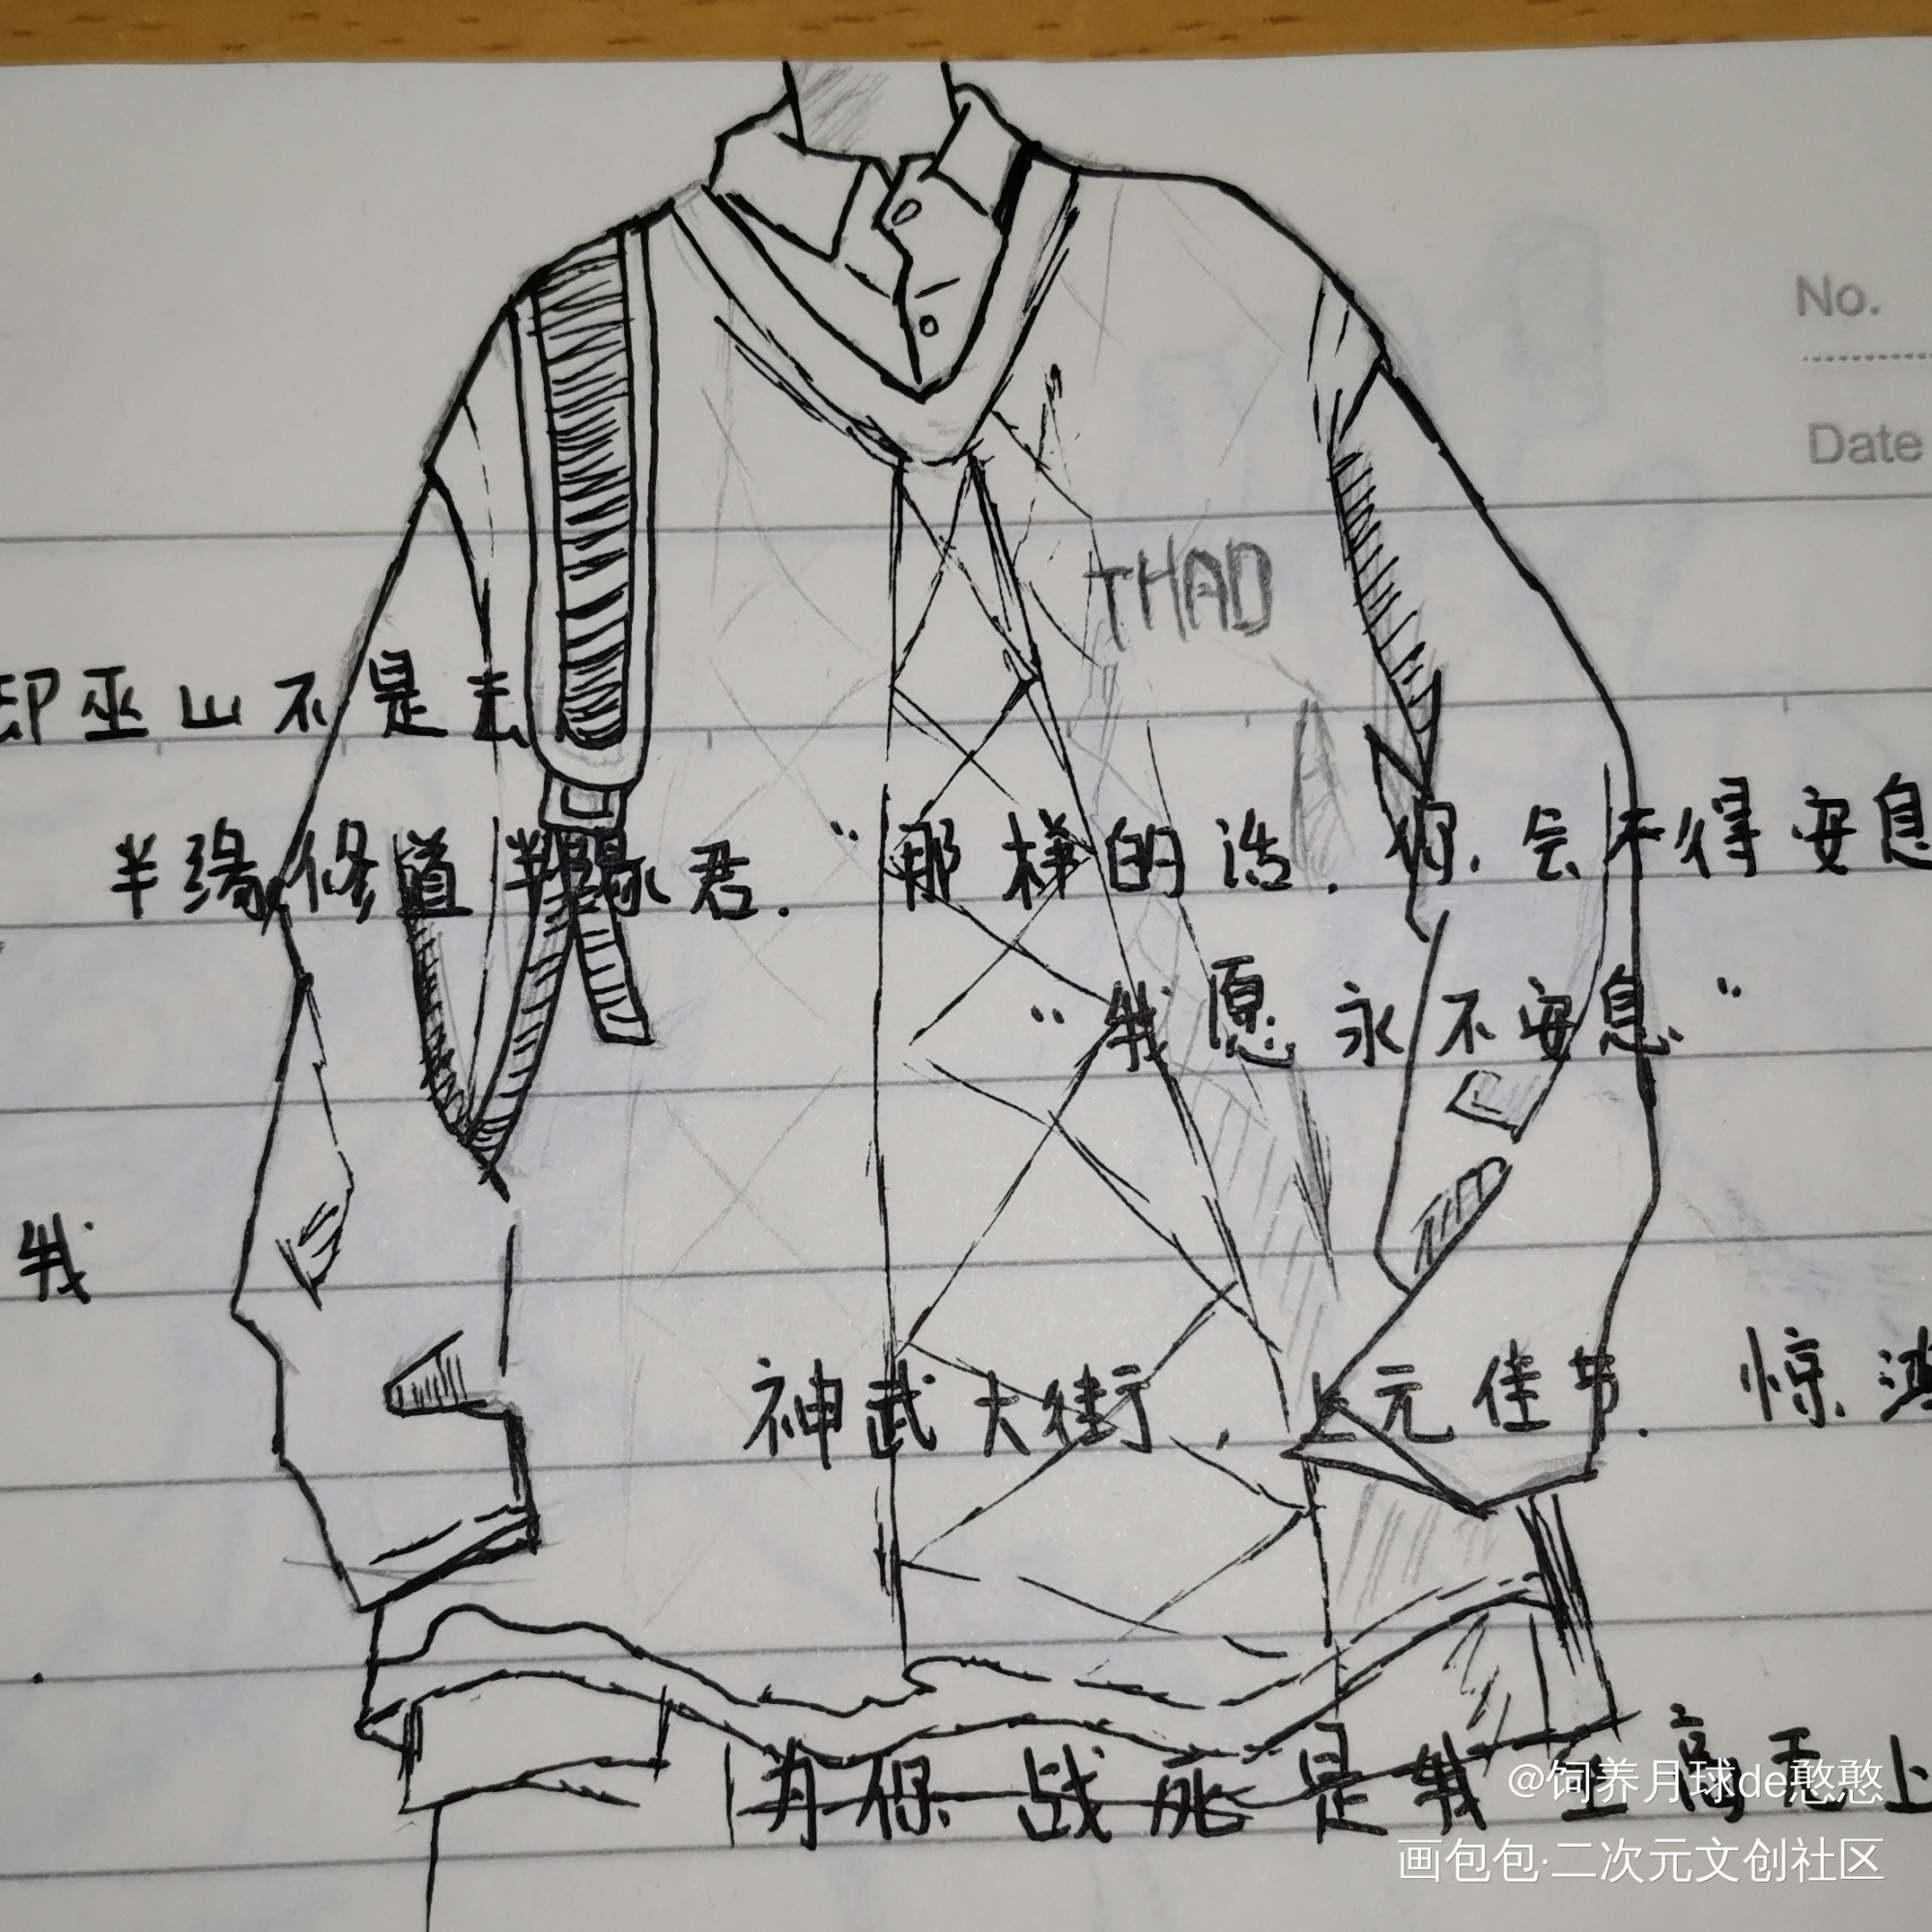 No.
Date
THAD
却巫山不是云
半缘修道半缘君. “那样的话. 你会不得安息
“我愿永不安息.”
我
神武大街, 上元佳节. 惊鸿
为你战死是我至高无上
@饲养月球de憨憨
画包包·二次元文创社区